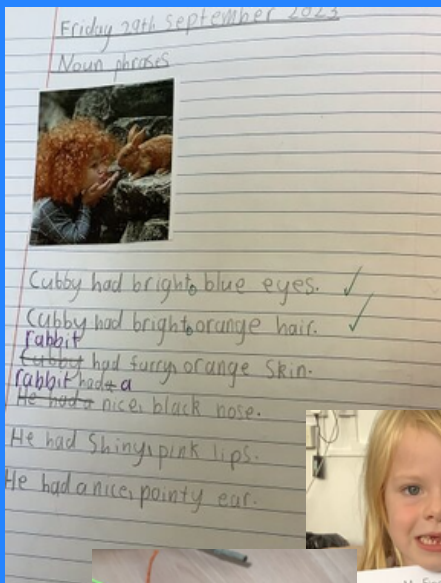 Friday 29th September 2023
Noun phrases
Cubby had bright, blue eyes.
Cubby had bright, orange hair.
rabbit
Cubby had furry, orange skin.
rabbit had a
He had a nice, black nose.
He had shiny, pink lips.
He had a nice, pointy ear.